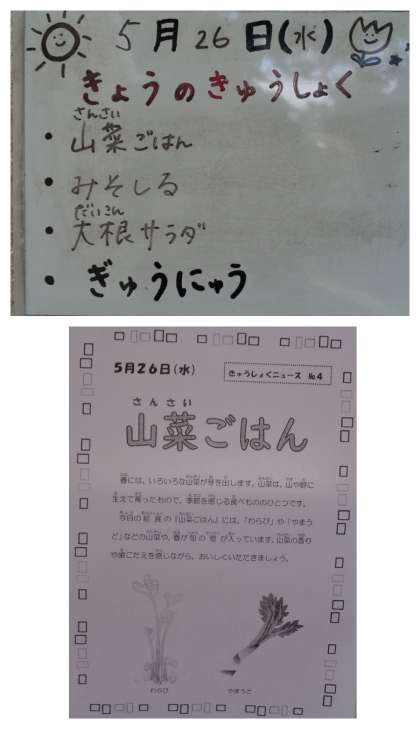 5月26日(水)
きょうのきゅうしょく
さんさい
・山菜ごはん
・みそしる
だいこん
・大根サラダ
・ぎゅうにゅう
5月26日(水)
きゅうしょくニュース №4
さんさい
山菜ごはん
春には、いろいろな山菜が芽を出します。山菜は、山や野に
生えて育ったもので、季節を感じる食べもののひとつです。
今日の給食の「山菜ごはん」には、「わらび」や「やまう
ど」などの山菜や、春が旬の が入っています。山菜の香り
や歯ごたえを感じながら、おいしくいただきましょう。
わらび
やまうど